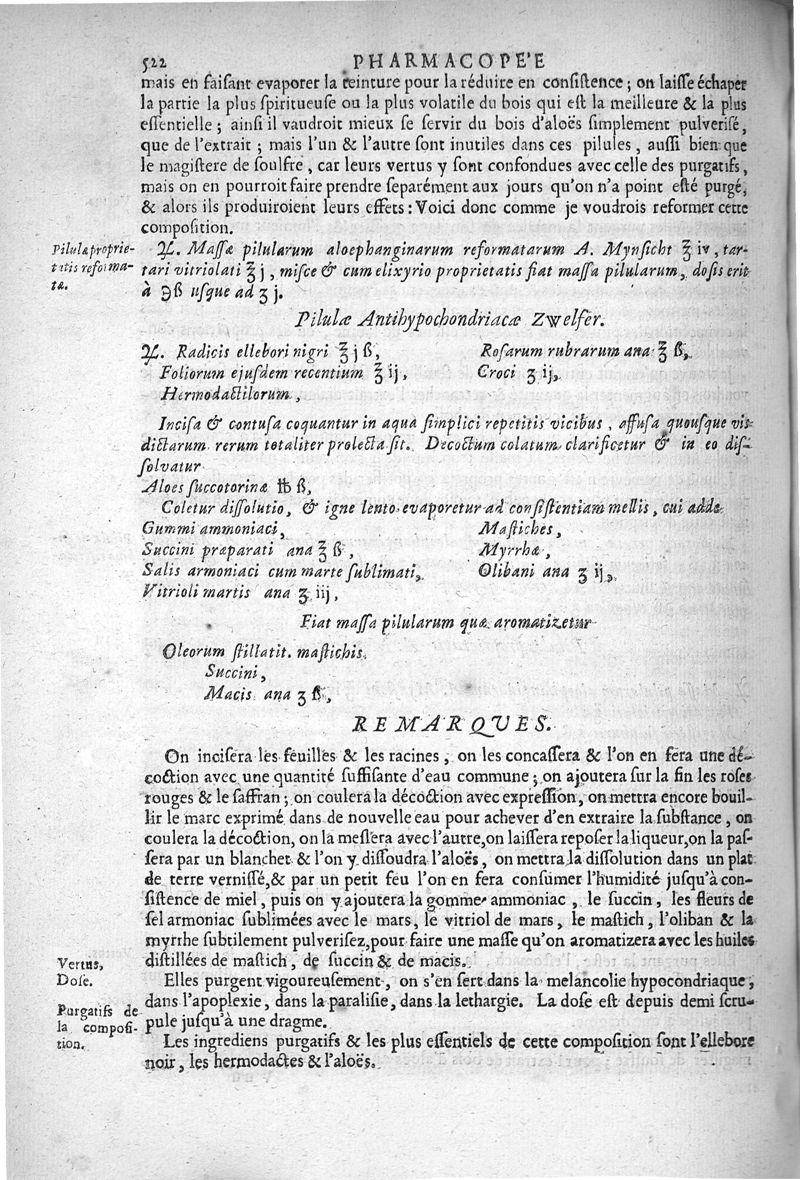 522 PHARMACOPE'E
mais en faiſant evaporer la teinture pour la réduire en conſiſtence ; on laiſſe échaper
la partie la plus ſpiritueuſe ou la plus volatile du bois qui eſt la meilleure & la plus
eſſentielle ; ainſi il vaudroit mieux ſe ſervir du bois d'aloës ſimplement pulveriſé,
que de l'extrait ; mais l'un & l'autre ſont inutiles dans ces pilules, auſſi bien que
le magiſtere de ſoulfre, car leurs vertus y ſont confondues avec celle des purgatifs,
mais on en pourroit faire prendre ſeparément aux jours qu'on n'a point eſté purgé,
& alors ils produiroient leurs effets : Voici donc comme je voudrois reformer cette
compoſition.
Pilulæ proprie-
tatis reforma-
tæ.
♃. Maſſæ pilularum aloephanginarum reformatarum A. Mynſicht ℥ iv, tar-
tari vitriolati ℥ j, miſce & cum elixyrio proprietatis fiat maſſa pilularum, doſis erit
à ℈ß uſque ad ʒ j.
Pilulæ Antihypochondriacæ Zwelfer.
♃. Radicis ellebori nigri ℥ j ß, Roſarum rubrarum ana ℥ ß,
Foliorum ejuſdem recentium ℥ ij, Croci ʒ ij,
Hermodactilorum,
Inciſa & contuſa coquantur in aqua ſimplici repetitis vicibus, affuſa quouſque vis
dictarum rerum totaliter prolecta ſit. Decoctum colatum clarificetur & in eo diſ-
ſolvatur
Aloes ſuccotorinæ ℔ ß,
Coletur diſſolutio, & igne lento evaporetur ad conſiſtentiam mellis, cui adde
Gummi ammoniaci, Maſtiches,
Succini præparati ana ℥ ß, Myrrhæ,
Salis armoniaci cum marte ſublimati, Olibani ana ʒ ij,
Vitrioli martis ana ʒ iij,
Fiat maſſa pilularum quæ aromatizetur
Oleorum ſtillatit. maſtichis.
Succini,
Macis ana ʒ ß,
REMARQUES.
On inciſera les feuilles & les racines, on les concaſſera & l'on en fera une dé-
coction avec une quantité ſuffiſante d'eau commune ; on ajoutera ſur la fin les roſes
rouges & le ſaffran ; on coulera la décoction avec expreſſion, on mettra encore bouil-
lir le marc exprimé dans de nouvelle eau pour achever d'en extraire la ſubſtance, on
coulera la décoction, on la meſlera avec l'autre, on laiſſera repoſer la liqueur, on la paſ-
ſera par un blanchet & l'on y diſſoudra l'aloës, on mettra la diſſolution dans un plat
de terre verniſſé, & par un petit feu l'on en fera conſumer l'humidité juſqu'à con-
ſiſtence de miel, puis on y ajoutera la gomme ammoniac, le ſuccin, les fleurs de
ſel armoniac ſublimées avec le mars, le vitriol de mars, le maſtich, l'oliban & la
myrrhe ſubtilement pulveriſez, pour faire une maſſe qu'on aromatizera avec les huiles
diſtillées de maſtich, de ſuccin & de macis.
Vertus,
Doſe.
Elles purgent vigoureuſement, on s'en ſert dans la melancolie hypocondriaque,
dans l'apoplexie, dans la paraliſie, dans la lethargie. La doſe eſt depuis demi ſcru-
pule juſqu'à une dragme.
Purgatifs de
la compoſi-
tion.
Les ingrediens purgatifs & les plus eſſentiels de cette compoſition ſont l'ellebore
noir, les hermodactes & l'aloës.